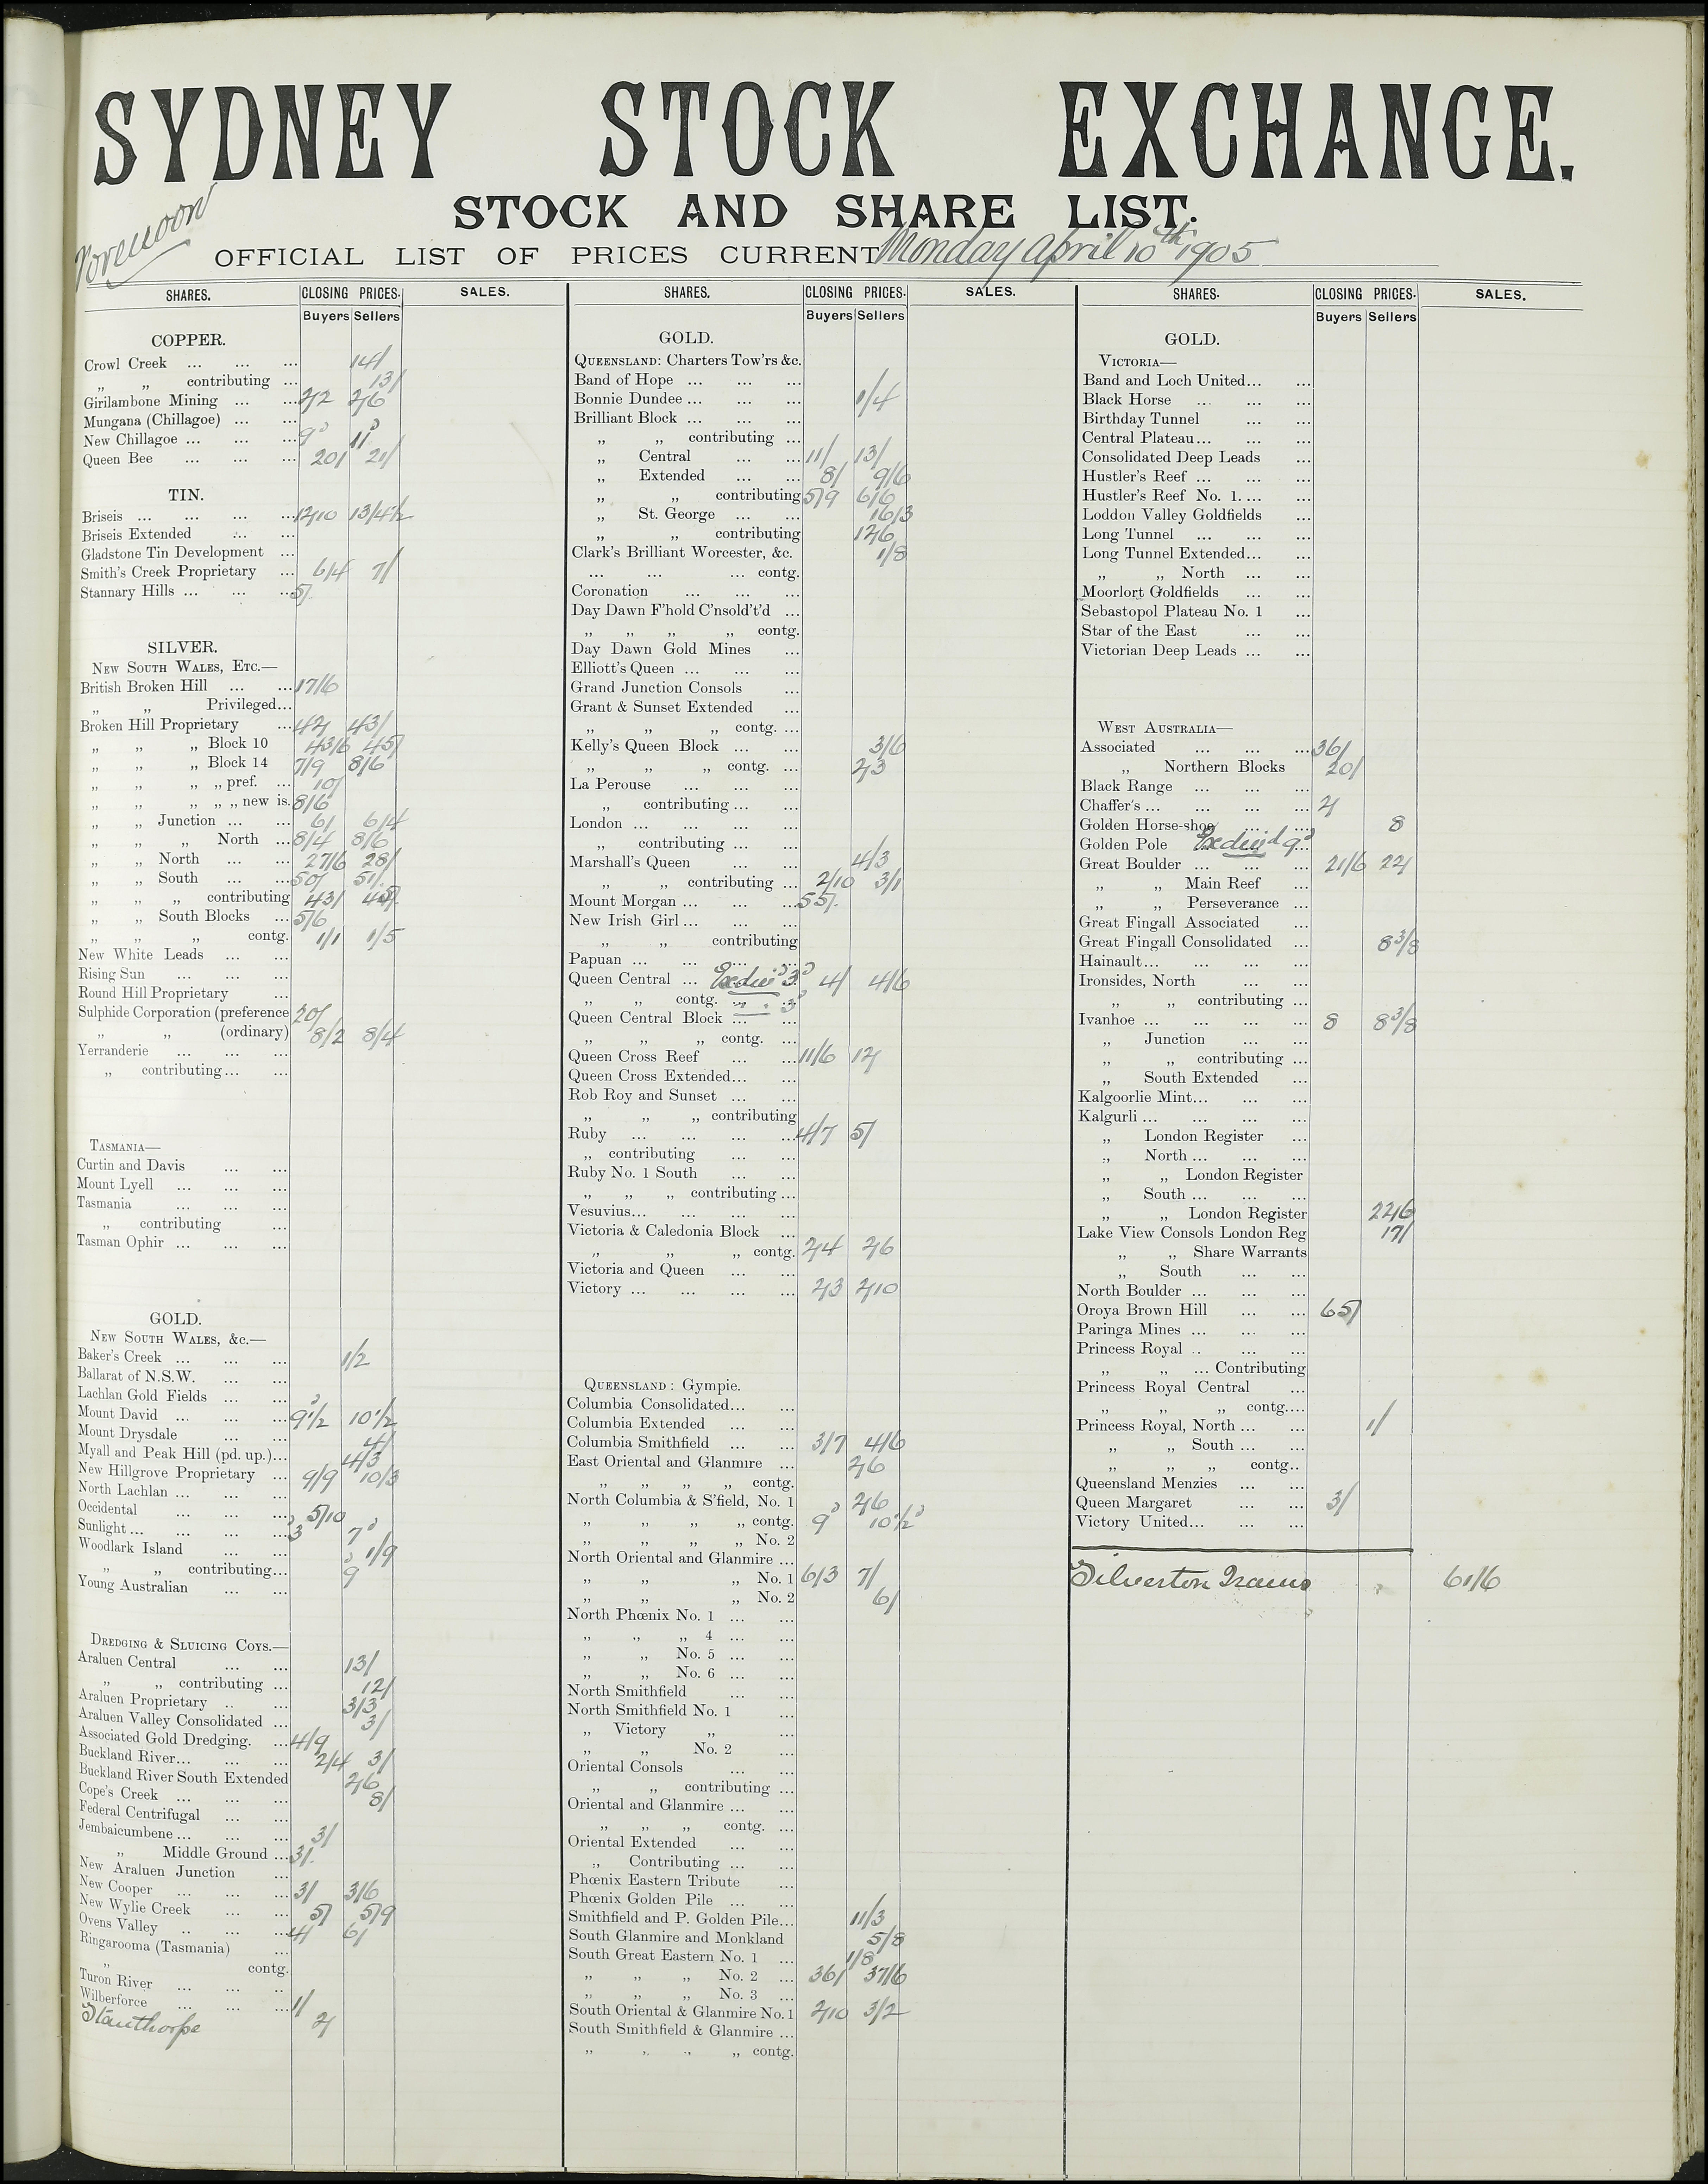 SYDNEY STOCK EXCHANGE.
STOCK AND SHARE LIST.
Forenoon
OFFICIAL LIST OF PRICES CURRENT Monday April 10th 1905
SHARES. CLOSING PRICES. SALES.
Buyers Sellers
COPPER.
Crowl Creek ... ... ... 14/
„ „ contributing ... 13/
Girilambone Mining ... ... 2/2 2/6
Mungana (Chillagoe) ... ...
New Chillagoe ... ... ... 9d 11d
Queen Bee ... ... ... 20/ 21/
TIN.
Briseis ... ... ... ... 12/10 13/4½
Briseis Extended ... ...
Gladstone Tin Development ...
Smith's Creek Proprietary ... 6/4 7/
Stannary Hills ... ... ... 5/
SILVER.
NEW SOUTH WALES, ETC.—
British Broken Hill ... ... 17/6
„ „ Privileged...
Broken Hill Proprietary ... 42/ 43/
„ „ „ Block 10 43/6 45/
„ „ „ Block 14 7/9 8/6
„ „ „ „ pref. ... 10/
„ „ „ „ „ new is. 8/6
„ „ Junction ... ... 6/ 6/4
„ „ „ North ... 8/4 8/6
„ „ North ... ... 27/6 28/
„ „ South ... ... 50/ 51/
„ „ „ contributing 43/ 45/
„ „ South Blocks ... 5/6
„ „ „ contg. 1/1 1/5
New White Leads ... ...
Rising Sun ... ... ...
Round Hill Proprietary ...
Sulphide Corporation (preference 20/
„ „ (ordinary) 8/2 8/4
Yerranderie ... ... ...
„ contributing... ...
TASMANIA—
Curtin and Davis ... ...
Mount Lyell ... ... ...
Tasmania ... ... ...
„ contributing ...
Tasman Ophir ... ... ...
GOLD.
NEW SOUTH WALES, &c.—
Baker's Creek ... ... ... 1/2
Ballarat of N.S.W. ... ...
Lachlan Gold Fields ... ...
Mount David ... ... ... 9½d 10½
Mount Drysdale ... ...
Myall and Peak Hill (pd. up.)... 4/
New Hillgrove Proprietary ... 4/3
North Lachlan ... ... ... 9/9 10/3
Occidental ... ... ...
Sunlight ... ... ... ... 5/10
Woodlark Island ... ... 3d 7d
„ „ contributing... 1/9
Young Australian ... ... 9d
DREDGING & SLUICING COYS.—
Araluen Central ... ... 13/
„ „ contributing ... 12/
Araluen Proprietary .. ... 3/3
Araluen Valley Consolidated ... 3/
Associated Gold Dredging. ... 4/9
Buckland River... ... ... 2/4 3/
Buckland River South Extended 2/6
Cope's Creek ... ... ... 8/
Federal Centrifugal ... ...
Jembaicumbene ... ... ... 3/
„ Middle Ground ... 3/
New Araluen Junction ...
New Cooper ... ... ... 3/ 3/6
New Wylie Creek ... ... 5/ 5/9
Ovens Valley .. ... ... 4/ 6/
Ringarooma (Tasmania) ...
„ contg.
Turon River ... ... ..
Wilberforce ... ... ... 1/
Stanthorpe 2/
SHARES. CLOSING PRICES. SALES.
Buyers Sellers
GOLD.
QUEENSLAND: Charters Tow'rs &c.
Band of Hope ... ... ...
Bonnie Dundee ... ... ... 1/4
Brilliant Block ... ... ...
„ „ contributing ...
„ Central ... ... 11/ 13/
„ Extended ... ... 8/ 9/6
„ „ contributing 5/9 6/6
„ St. George ... ... 16/3
„ „ contributing 12/6
Clark's Brilliant Worcester, &c. 1/8
... ... ... contg.
Coronation ... ... ...
Day Dawn F'hold C'nsold't'd ...
„ „ „ „ contg.
Day Dawn Gold Mines ...
Elliott's Queen ... ... ...
Grand Junction Consols ...
Grant & Sunset Extended ...
„ „ „ contg. ...
Kelly's Queen Block ... ... 3/6
„ „ „ contg. ... 2/3
La Perouse ... ... ...
„ contributing ... ...
London ... ... ... ...
„ contributing ... ...
Marshall's Queen ... ... 4/3
„ „ contributing ... 2/10 3/1
Mount Morgan ... ... ... 55/
New Irish Girl ... ... ...
„ „ contributing
Papuan ... ... ... ...
Queen Central ... Exdivd 3d 4/ 4/6
„ „ contg. „ „ 3d
Queen Central Block ... ...
„ „ „ contg. ...
Queen Cross Reef ... ... 11/6 12/
Queen Cross Extended... ...
Rob Roy and Sunset ... ...
„ „ „ contributing
Ruby ... ... ... ... 4/7 5/
„ contributing ... ...
Ruby No. 1 South ... ...
„ „ „ contributing ...
Vesuvius... ... ... ...
Victoria & Caledonia Block ...
„ „ „ contg. 2/4 2/6
Victoria and Queen ... ...
Victory ... ... ... ... 2/3 2/10
QUEENSLAND: Gympie.
Columbia Consolidated... ...
Columbia Extended ... ...
Columbia Smithfield ... ... 3/7 4/6
East Oriental and Glanmire ... 2/6
„ „ „ „ contg.
North Columbia & S'field, No. 1 2/6
„ „ „ „ contg. 9d 10½d
„ „ „ „ No. 2
North Oriental and Glanmire ...
„ „ „ No. 1 6/3 7/
„ „ „ No. 2 6/
North Phœnix No. 1 ... ...
„ „ „ 4 ... ...
„ „ No. 5 ... ...
„ „ No. 6 ... ...
North Smithfield ... ...
North Smithfield No. 1 ...
„ Victory „ ...
„ „ No. 2 ...
Oriental Consols ... ...
„ „ contributing ...
Oriental and Glanmire ... ...
„ „ „ contg. ...
Oriental Extended ... ...
„ Contributing ... ...
Phœnix Eastern Tribute ...
Phœnix Golden Pile ... ...
Smithfield and P. Golden Pile... 11/3
South Glanmire and Monkland 5/8
South Great Eastern No. 1 ... 1/8
„ „ „ No. 2 ... 36/ 37/6
„ „ „ No. 3 ...
South Oriental & Glanmire No. 1 2/10 3/2
South Smithfield & Glanmire ...
„ „ „ „ contg.
SHARES. CLOSING PRICES. SALES.
Buyers Sellers
GOLD.
VICTORIA—
Band and Loch United... ...
Black Horse ... ... ...
Birthday Tunnel ... ...
Central Plateau... ... ...
Consolidated Deep Leads ...
Hustler's Reef ... ... ...
Hustler's Reef No. 1. ... ...
Loddon Valley Goldfields ...
Long Tunnel ... ... ...
Long Tunnel Extended... ...
„ „ North ... ...
Moorlort Goldfields ... ...
Sebastopol Plateau No. 1 ...
Star of the East ... ...
Victorian Deep Leads ... ...
WEST AUSTRALIA—
Associated ... ... ... 36/
„ Northern Blocks 20/
Black Range ... ... ...
Chaffer's ... ... ... ... 2/
Golden Horse-shoe ... ... 8
Golden Pole Exdivd 9d
Great Boulder ... ... ... 21/6 22/
„ „ Main Reef ...
„ „ Perseverance ...
Great Fingall Associated ...
Great Fingall Consolidated ... 8 3/8
Hainault... ... ... ...
Ironsides, North ... ...
„ „ contributing ...
Ivanhoe ... ... ... ... 8 8 3/8
„ Junction ... ...
„ „ contributing ...
„ South Extended ...
Kalgoorlie Mint... ... ...
Kalgurli ... ... ... ...
„ London Register ...
„ North ... ... ...
„ „ London Register
„ South ... ... ...
„ „ London Register 22/6
Lake View Consols London Reg 17/
„ „ Share Warrants
„ South ... ...
North Boulder ... ... ...
Oroya Brown Hill ... ... 65/
Paringa Mines ... ... ...
Princess Royal .. ... ...
„ „ ... Contributing
Princess Royal Central ...
„ „ „ contg....
Princess Royal, North ... ... 1/
„ „ South ... ...
„ „ „ contg..
Queensland Menzies ... ...
Queen Margaret ... ... 3/
Victory United... ... ...
Silverton Trams 61/6